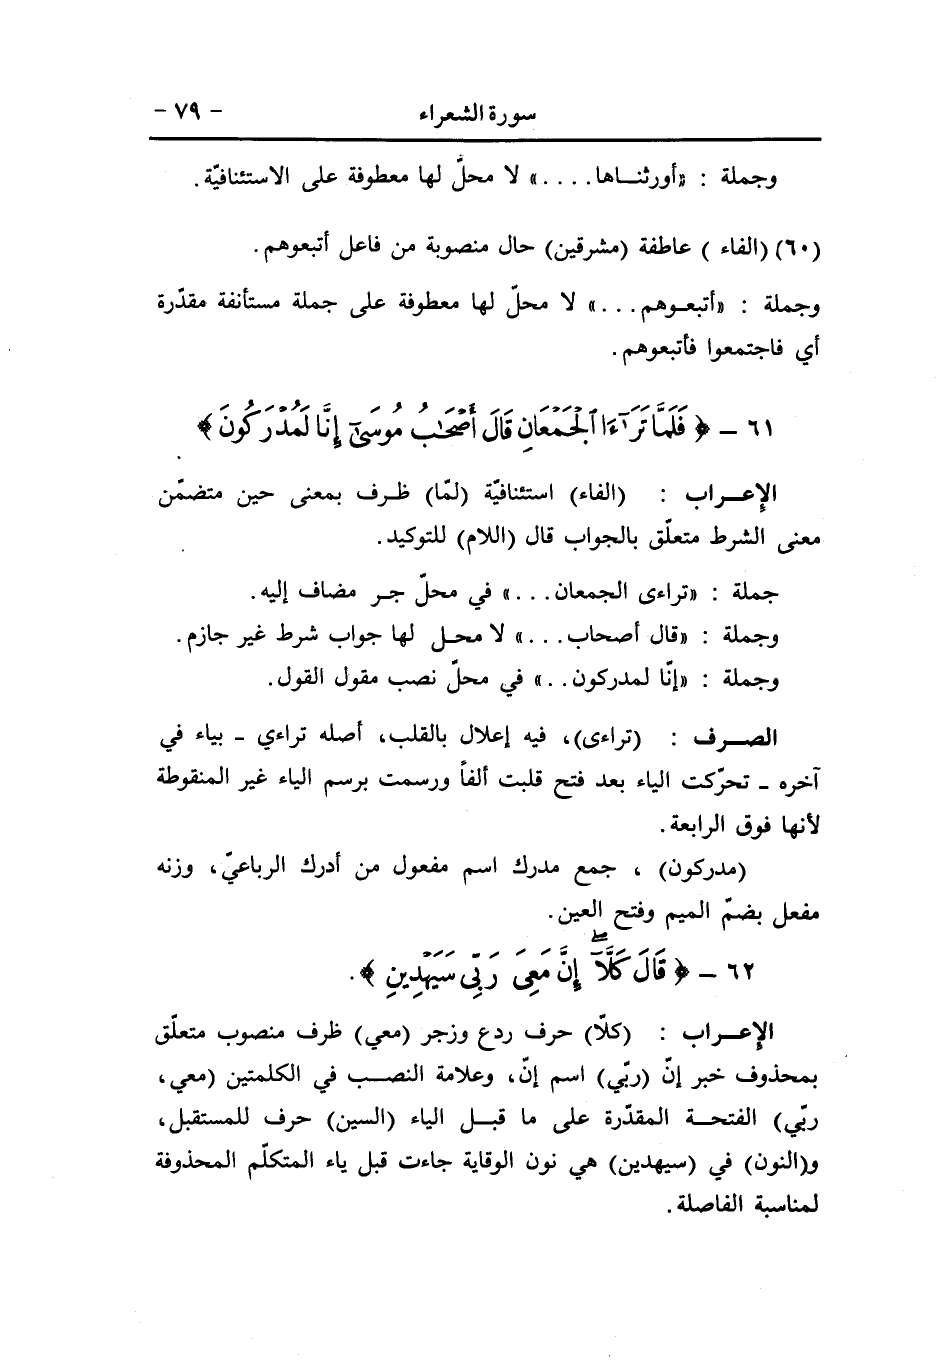 سورة الشعراء - ٧٩ -
وجملة : «أورثنــاها. . . .» لا محلَّ لها معطوفة على الاستئنافيّة.
(٦٠) (الفاء ) عاطفة (مشرقين) حال منصوبة من فاعل أتبعوهم.
وجملة : «أتبعــوهم. . .» لا محلّ لها معطوفة على جملة مستأنفة مقدّرة
أي فاجتمعوا فأتبعوهم.
٦١ ـ ﴿ فَلَمَّا تَرَٰٓءَا ٱلْجَمْعَانِ قَالَ أَصْحَٰبُ مُوسَىٰٓ إِنَّا لَمُدْرَكُونَ ﴾
الإعــراب : (الفاء) استئنافيّة (لمّا) ظـرف بمعنى حين متضمّن
معنى الشرط متعلّق بالجواب قال (اللام) للتوكيد.
جملة : «تراءى الجمعان. . .» في محلّ جـر مضاف إليه.
وجملة : «قال أصحاب. . .» لا محـل لها جواب شرط غير جازم.
وجملة : «إنّا لمدركون. .» في محلّ نصب مقول القول.
الصــرف : (تراءى)، فيه إعلال بالقلب، أصله تراءي ـ بياء في
آخره ـ تحرّكت الياء بعد فتح قلبت ألفاً ورسمت برسم الياء غير المنقوطة
لأنها فوق الرابعة.
(مدركون) ، جمع مدرك اسم مفعول من أدرك الرباعيّ، وزنه
مفعل بضمّ الميم وفتح العين.
٦٢ ـ ﴿ قَالَ كَلَّآ ۖ إِنَّ مَعِىَ رَبِّى سَيَهْدِينِ ﴾.
الإعــراب : (كلّا) حرف ردع وزجر (معي) ظرف منصوب متعلّق
بمحذوف خبر إنّ (ربّي) اسم إنّ، وعلامة النصــب في الكلمتين (معي،
ربّي) الفتحــة المقدّرة على ما قبــل الياء (السين) حرف للمستقبل،
و(النون) في (سيهدين) هي نون الوقاية جاءت قبل ياء المتكلّم المحذوفة
لمناسبة الفاصلة.